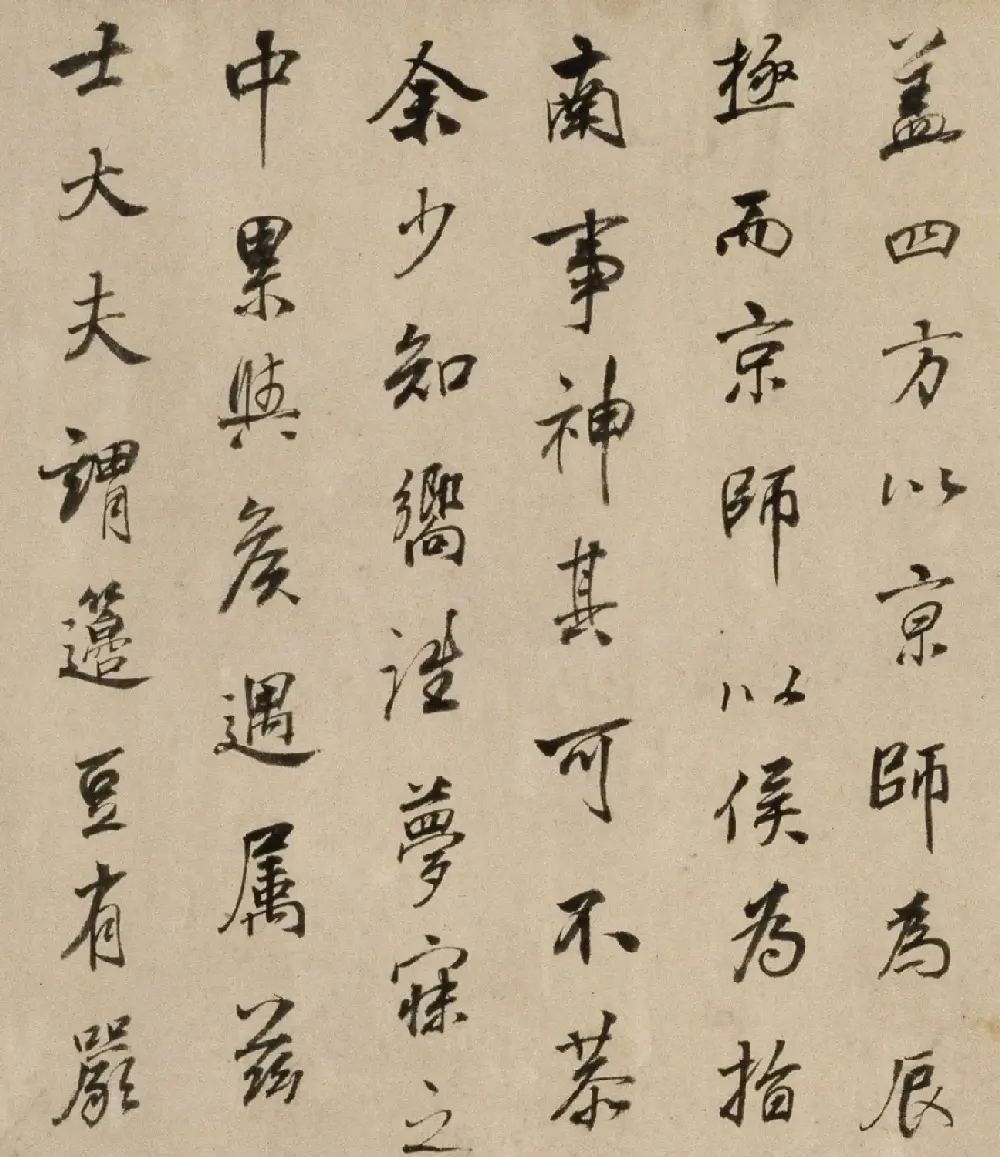 蓋四方以京師為辰
極而京師以侯為指
南事神其可不恭
余少知嚮往夢寐之
中累與矦遇属茲
士大夫謂籩豆有嚴